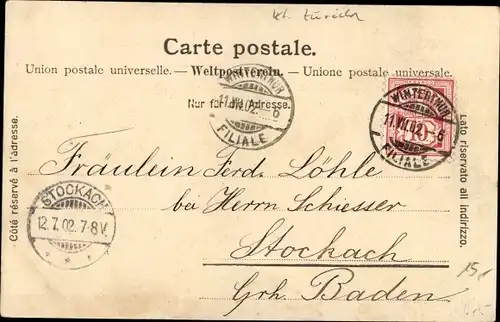 kt. Zürich
Carte postale.
Union postale universelle. — Weltpostverein. — Unione postale universale.
Nur für die Adresse.
WINTERTHUR
11.VII.02. 6
FILIALE
WINTERTHUR
11.VII.02. 6
FILIALE
10
Côté réservé à l'adresse.
Lato riservato all indirizzo.
Fräulein Ferd. Löhle
bei Herrn Schiesser
Stockach
Grh. Baden
STOCKACH
12.7.02.7-8V.
15.-